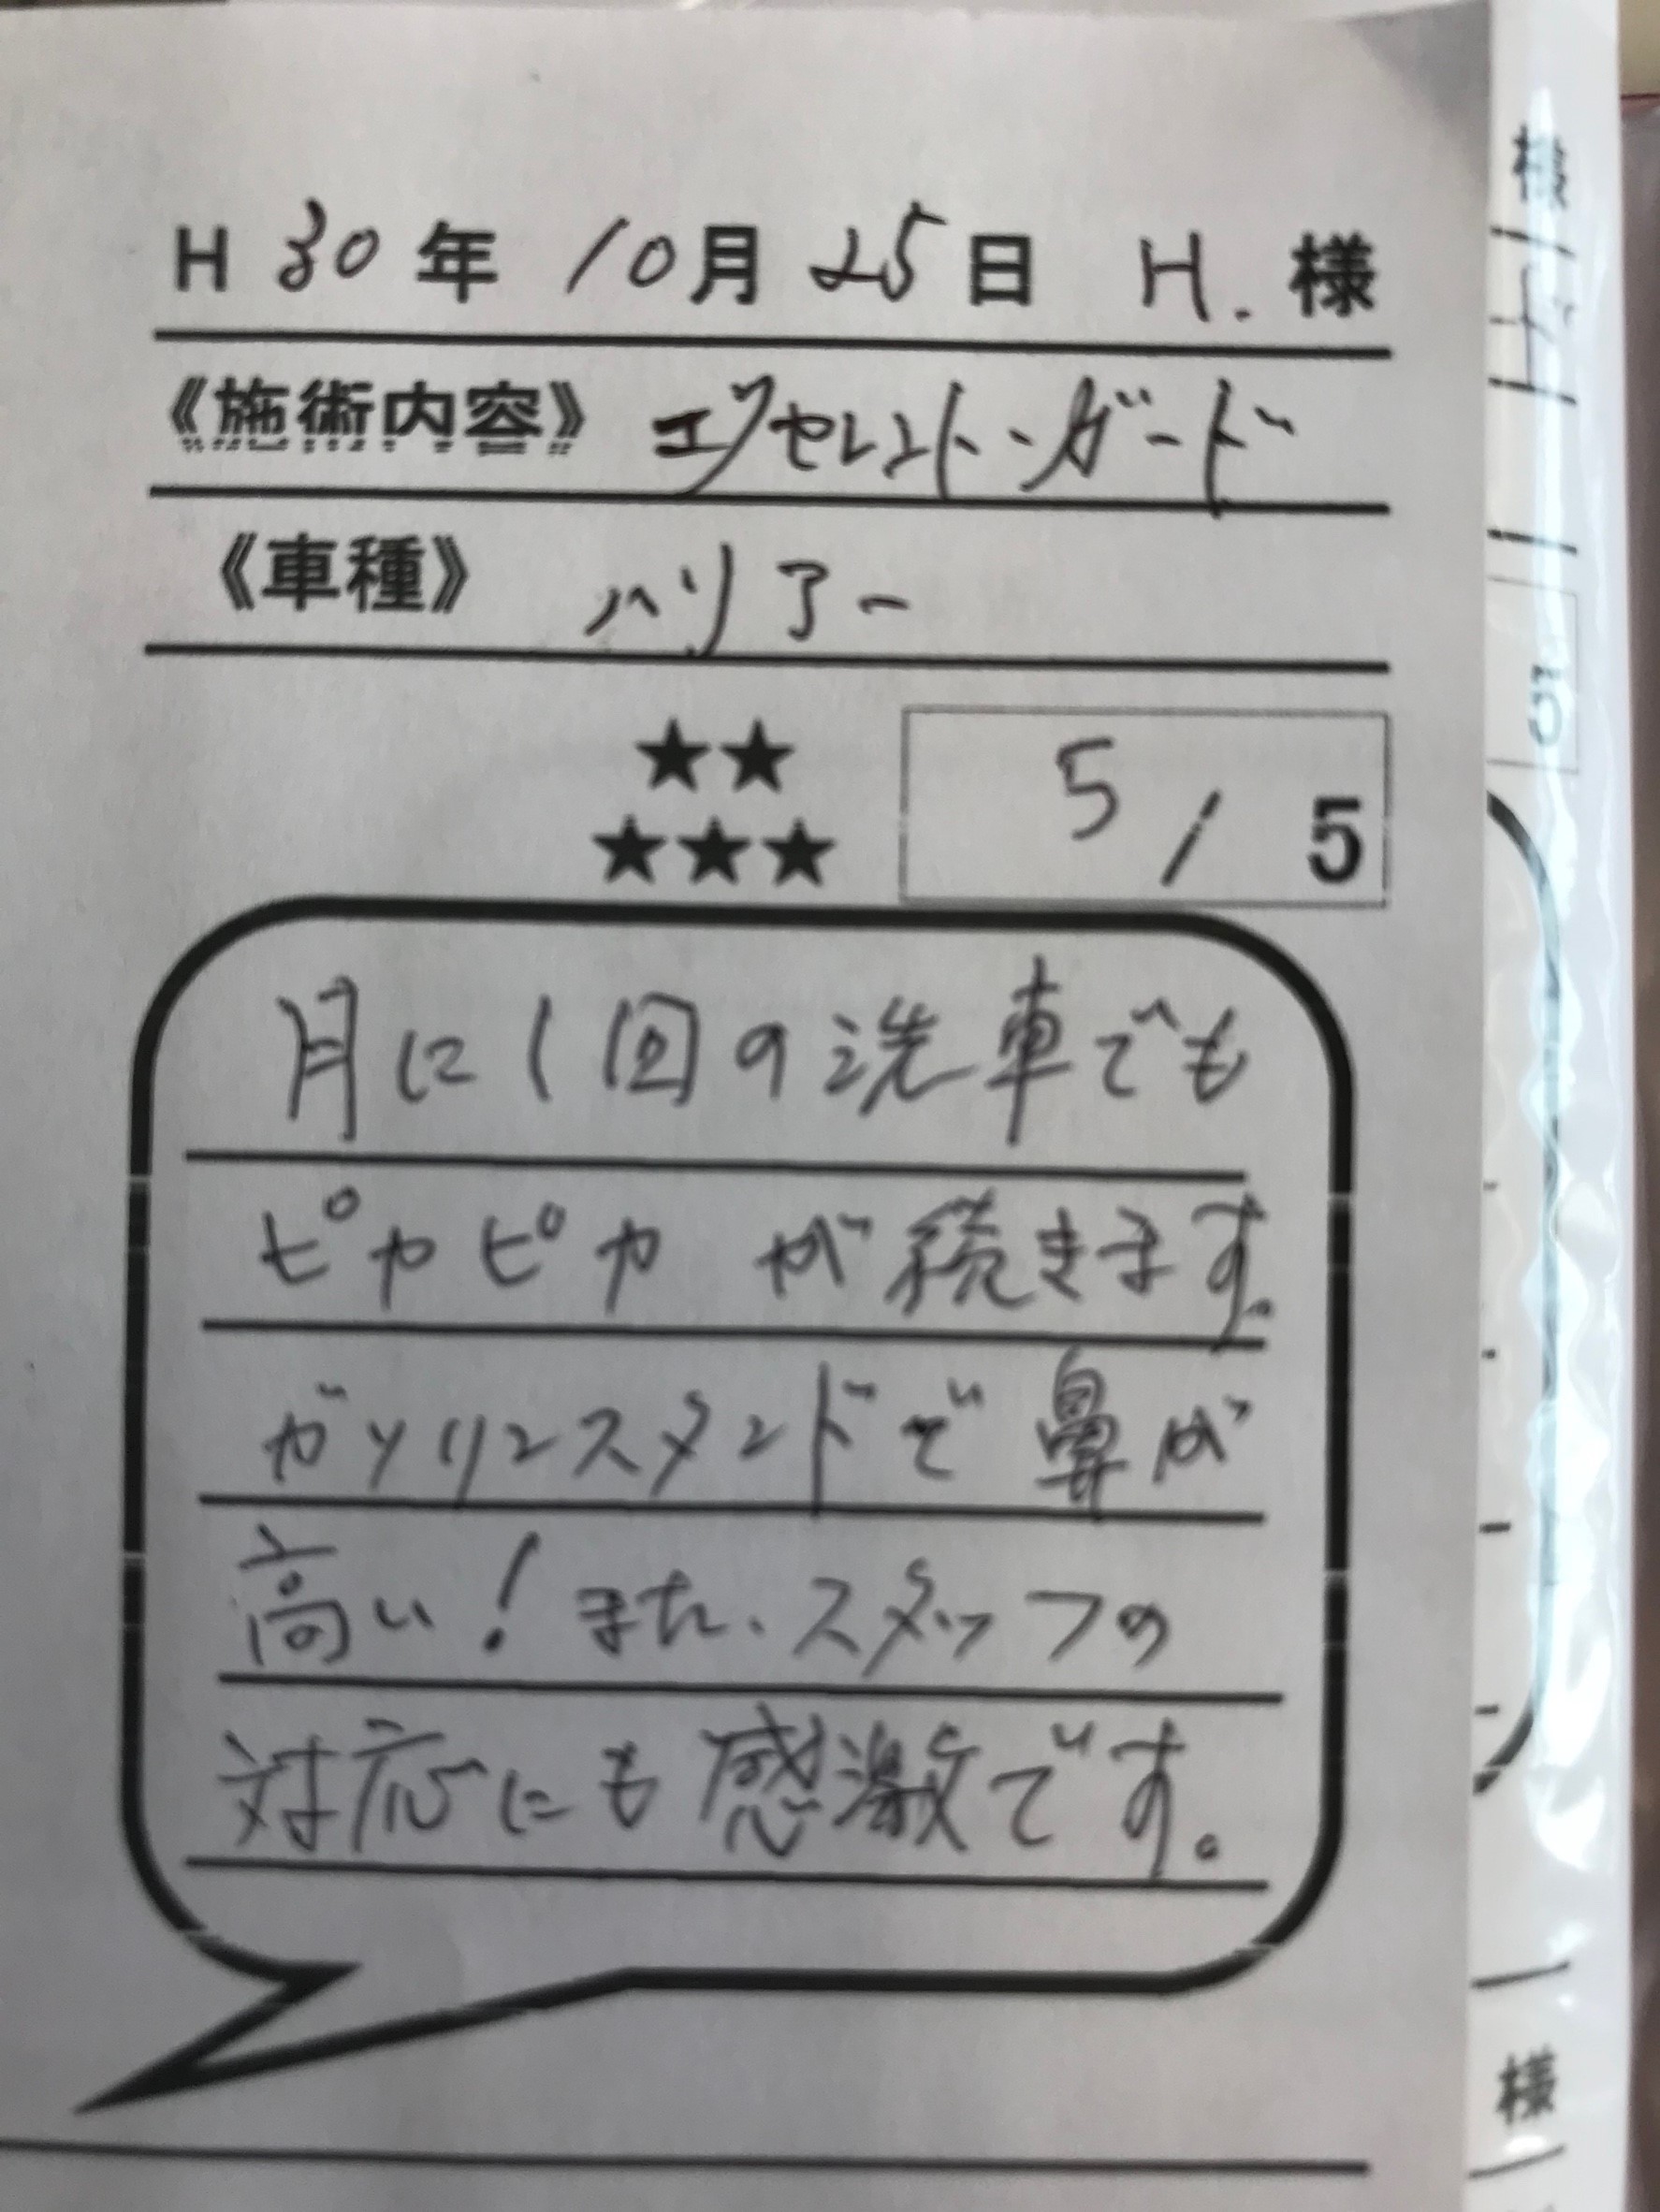 H 30 年 10 月 25 日 H. 様
《施術内容》 エクセレント・ガード
《車種》 ハリアー
★★
★★★
5 / 5
月に1回の洗車でも
ピカピカが続きます。
ガソリンスタンドで鼻が
高い!また、スタッフの
対応にも感激です。
様
5
様